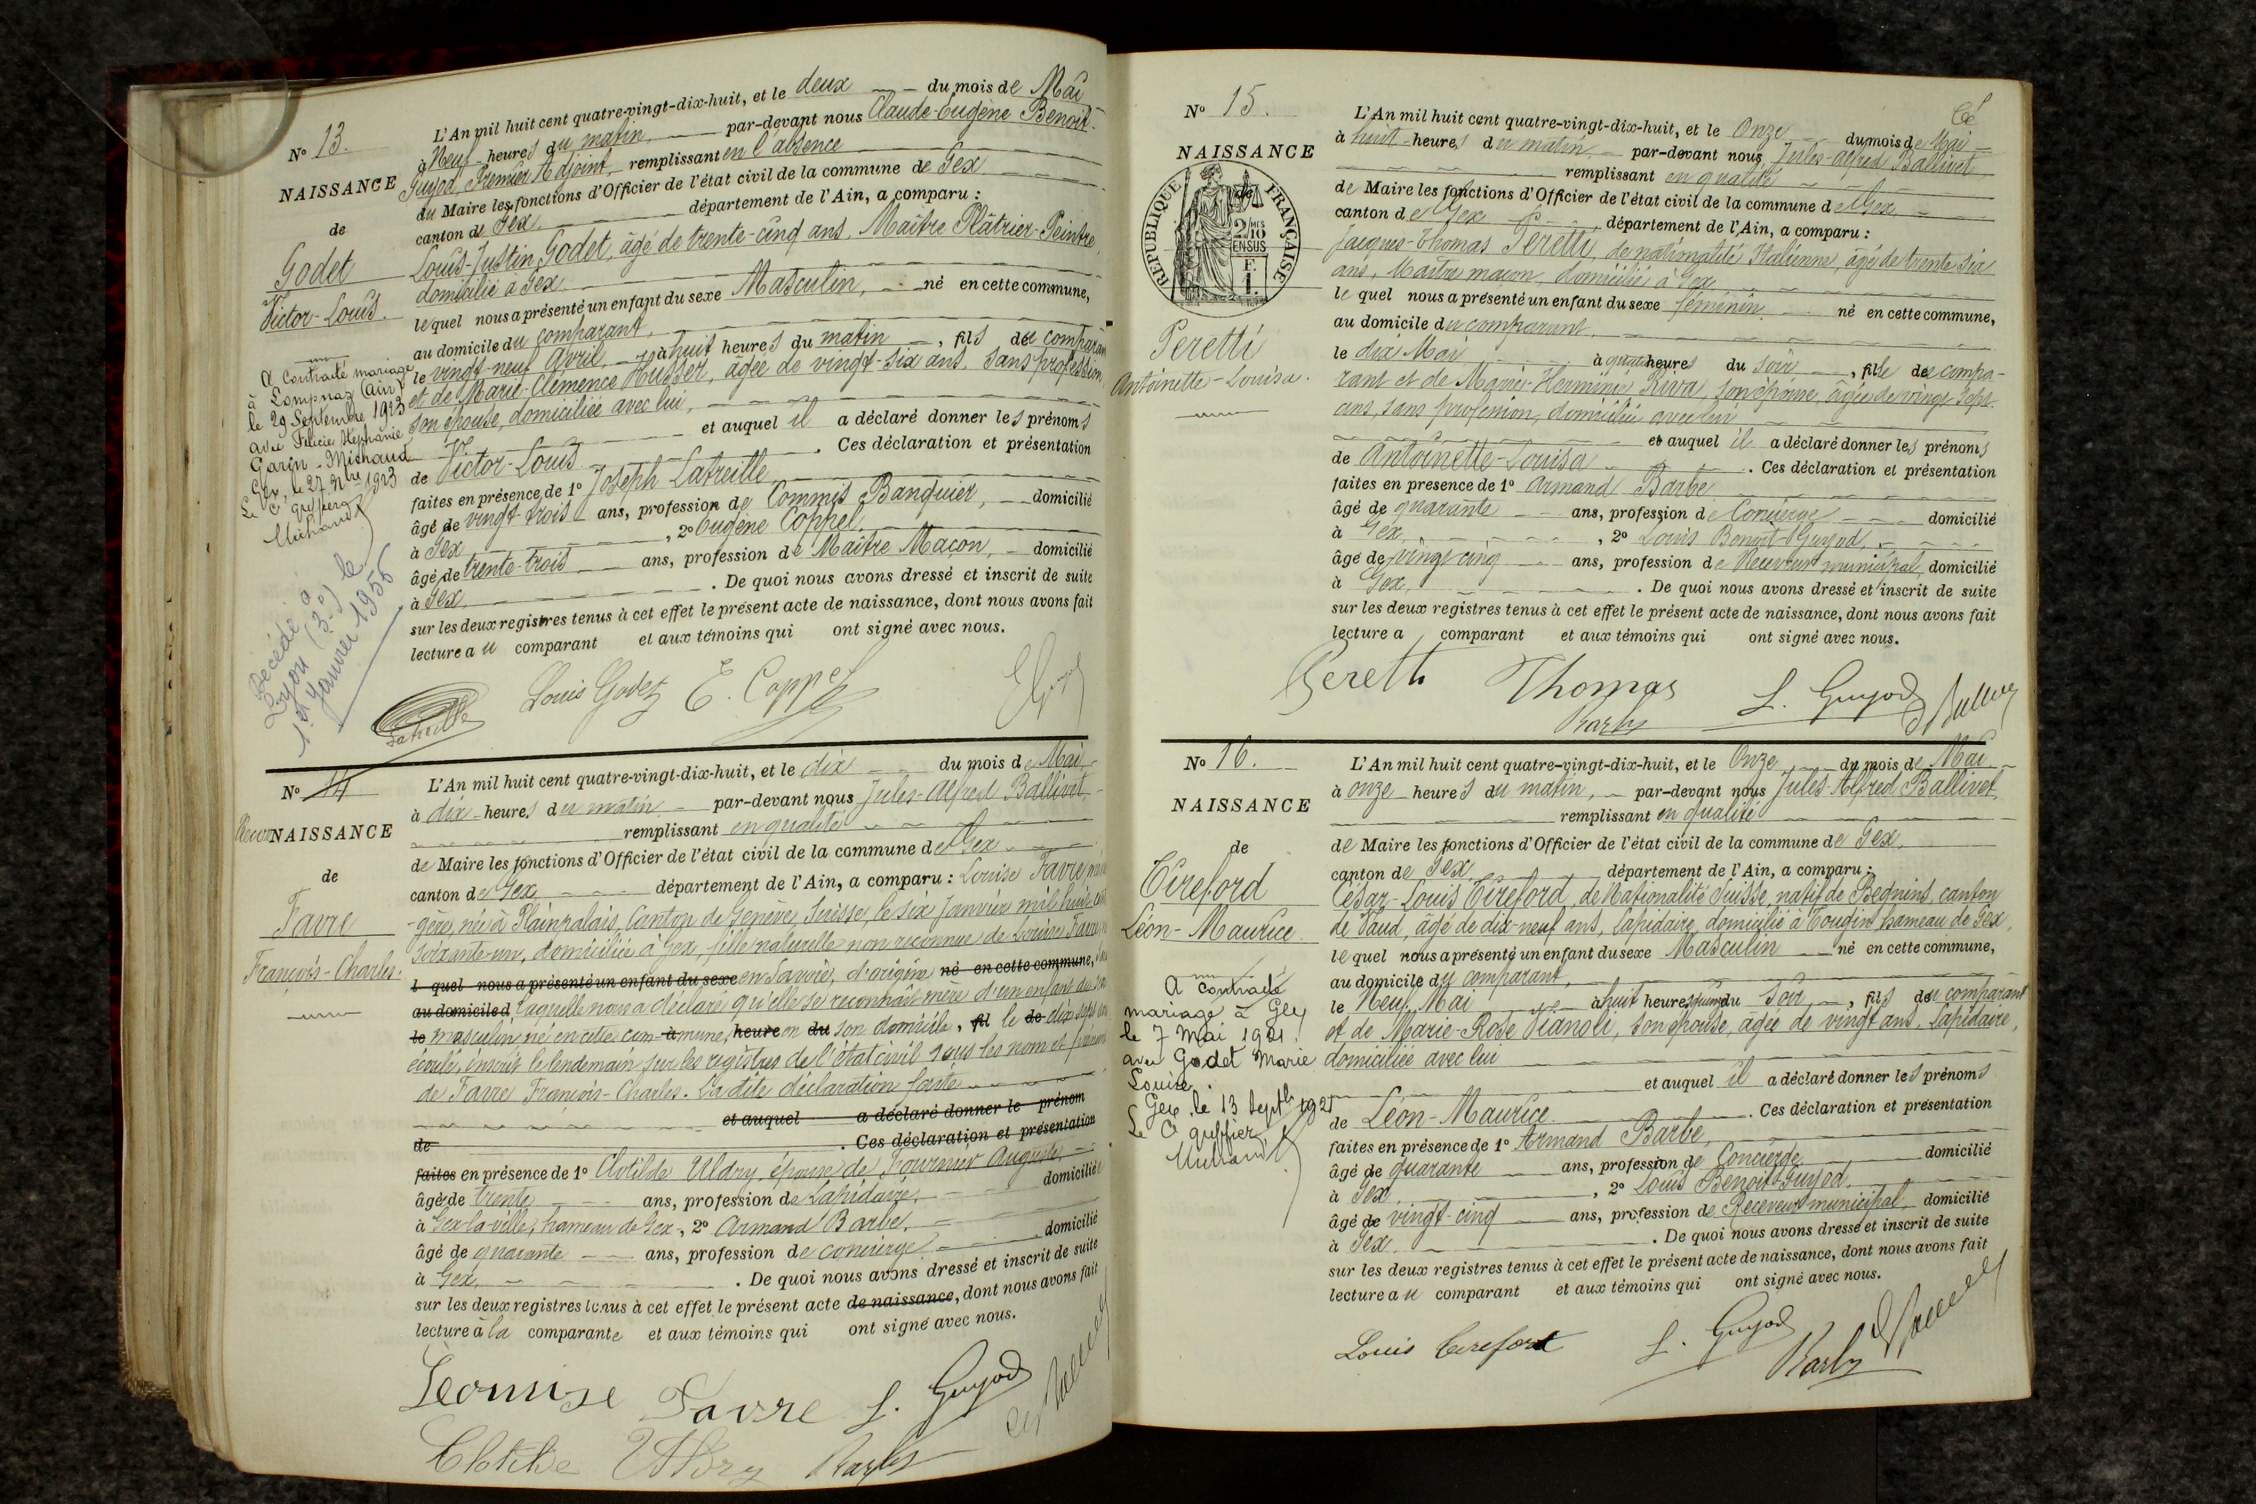 N° 13.
NAISSANCE
de
Godet
Victor-Louis.
L'An mil huit cent quatre-vingt-dix-huit, et le deux du mois de Mai
à Neuf heures du matin, par-devant nous Claude-Eugène Benoit-
Guyod, Premier Adjoint, remplissant en l'absence
du Maire les fonctions d'Officier de l'état civil de la commune de Gex
canton de Gex département de l'Ain, a comparu :
Louis-Justin Godet, âgé de trente-cinq ans, Maître Plâtrier-Peintre,
domicilié à Gex
lequel nous a présenté un enfant du sexe Masculin, né en cette commune,
au domicile du comparant,
le vingt-neuf Avril, à huit heures du matin, fils du comparant
et de Marie-Clémence Husser, âgée de vingt-six ans, sans profession,
son épouse, domiciliée avec lui,
et auquel il a déclaré donner les prénoms
de Victor-Louis. Ces déclaration et présentation
faites en présence de 1° Joseph Latreille
âgé de vingt-trois ans, profession de Commis Banquier, domicilié
à Gex, 2° Eugène Coppel,
âgé de trente-trois ans, profession de Maître Maçon, domicilié
à Gex. De quoi nous avons dressé et inscrit de suite
sur les deux registres tenus à cet effet le présent acte de naissance, dont nous avons fait
lecture au comparant et aux témoins qui ont signé avec nous.
A contracté mariage
à Lompnaz (Ain)
le 29 Septembre 1923
avec Félicie Stéphanie
Garin-Michaud
Gex, le 27 9bre 1923
Le Cis greffier
Michaud
Décédé à
Lyon (3°) le
1er Janvier 1956
Latreille
Louis Godet E. Coppel
N° 14
NAISSANCE
de
Favre
François-Charles.
L'An mil huit cent quatre-vingt-dix-huit, et le dix du mois de Mai
à dix heures du matin par-devant nous Jules-Alfred Ballivet,
remplissant en qualité
de Maire les fonctions d'Officier de l'état civil de la commune de Gex
canton de Gex, département de l'Ain, a comparu : Louise Favre
gère, née à Plainpalais, Canton de Genève, Suisse, le six Janvier mil huit cent
soixante-un, domiciliée à Gex, fille naturelle non reconnue de Louise Favre
l quel nous a présenté un enfant du sexe en Savoie, d'origine né en cette commune,
au domicile d laquelle nous a déclaré qu'elle se reconnaît mère d'un enfant du
le masculin, né en cette com- à mune, heure en du son domicile, fil le de dix sept
écoulé, inscrit le lendemain sur les registres de l'état civil sous les nom et prénoms
de Favre François-Charles. La dite déclaration faite
et auquel a déclaré donner le prénom
de . Ces déclaration et présentation
faites en présence de 1° Clotilde Uldry, épouse de Fournier Auguste,
âgée de trente ans, profession de Lapidaire, domiciliée
à Gex-la-ville, hameau de Gex, 2° Armand Barbe,
âgé de quarante ans, profession de concierge domicilié
à Gex, . De quoi nous avons dressé et inscrit de suite
sur les deux registres tenus à cet effet le présent acte de naissance, dont nous avons fait
lecture à la comparante et aux témoins qui ont signé avec nous.
Favre L. Guyod
Clotilde Uldry Barbe
N° 15.
NAISSANCE
de
RÉPUBLIQUE FRANÇAISE
2/10 MES
EN SUS
F.
1.
Peretti
Antoinette-Louisa.
L'An mil huit cent quatre-vingt-dix-huit, et le Onze du mois de Mai
à huit heures du matin par-devant nous Jules-Alfred Ballivet
remplissant en qualité
de Maire les fonctions d'Officier de l'état civil de la commune de Gex
canton de Gex département de l'Ain, a comparu :
Jacques-Thomas Peretti, de nationalité Italienne, âgé de trente-six
ans, Maître maçon, domicilié à Gex
lequel nous a présenté un enfant du sexe féminin né en cette commune,
au domicile du comparant,
le dix Mai à quatre heures du soir, fille du compa-
rant et de Marie-Herminie Riva, son épouse, âgée de vingt-sept
ans, sans profession, domiciliée avec lui
et auquel il a déclaré donner les prénoms
de Antoinette-Louisa. Ces déclaration et présentation
faites en présence de 1° Armand Barbe
âgé de quarante ans, profession de Concierge domicilié
à Gex, 2° Louis Benoit-Guyod,
âgé de vingt-cinq ans, profession de Receveur municipal, domicilié
à Gex, . De quoi nous avons dressé et inscrit de suite
sur les deux registres tenus à cet effet le présent acte de naissance, dont nous avons fait
lecture a comparant et aux témoins qui ont signé avec nous.
Peretti Thomas L. Guyod
Barbe
N° 16.
NAISSANCE
de
Cireford
Léon-Maurice.
L'An mil huit cent quatre-vingt-dix-huit, et le Onze du mois de Mai
à onze heures du matin, par-devant nous Jules-Alfred Ballivet,
remplissant en qualité
de Maire les fonctions d'Officier de l'état civil de la commune de Gex,
canton de Gex département de l'Ain, a comparu :
César-Louis Cireford, de Nationalité Suisse, natif de Begnins, canton
de Vaud, âgé de dix-neuf ans, Lapidaire, domicilié à Tougin hameau de Gex,
lequel nous a présenté un enfant du sexe Masculin né en cette commune,
au domicile du comparant,
le Neuf Mai à huit heures du soir, fils du comparant
et de Marie-Rose Pianoli, son épouse, âgée de vingt ans, Lapidaire,
domiciliée avec lui
et auquel il a déclaré donner les prénoms
de Léon-Maurice. Ces déclaration et présentation
faites en présence de 1° Armand Barbe,
âgé de quarante ans, profession de Concierge domicilié
à Gex, 2° Louis Benoit-Guyod,
âgé de vingt-cinq ans, profession de Receveur municipal, domicilié
à Gex. De quoi nous avons dressé et inscrit de suite
sur les deux registres tenus à cet effet le présent acte de naissance, dont nous avons fait
lecture au comparant et aux témoins qui ont signé avec nous.
A contracté
mariage à Gex
le 7 Mai 1921
avec Godet Marie
Louise.
Gex, le 13 Septbre 1921
Le Cis greffier
Michaud
Louis Cireford L. Guyod
Barbe